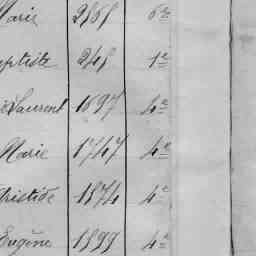 Marie 2565 6e
aptiste 245 1e
Laurent 1697 4e
Marie 1747 4e
ristide 1874 4e
Eugène 1899 4e